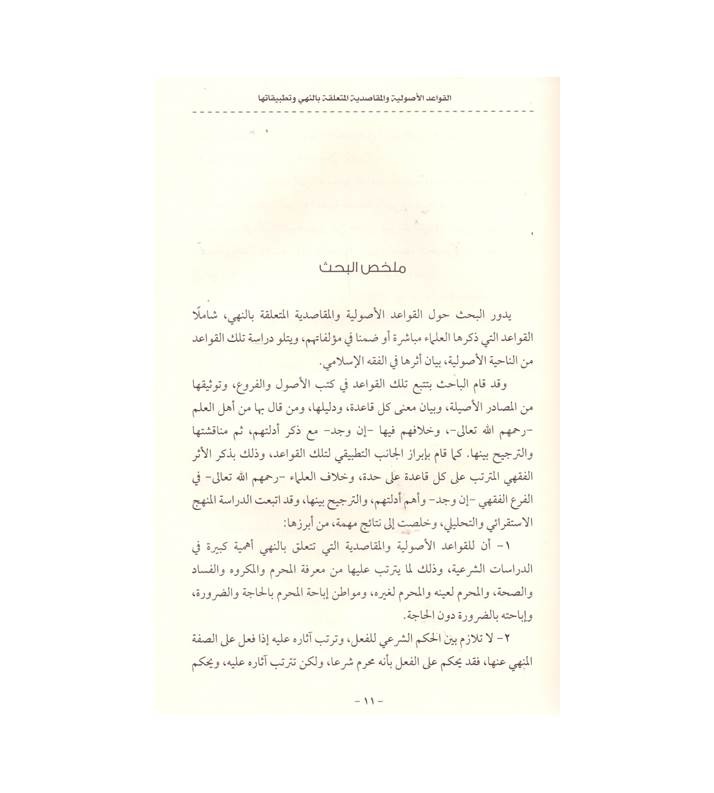 القواعد الأصولية والمقاصدية المتعلقة بالنهي وتطبيقاتها
ملخص البحث
يدور البحث حول القواعد الأصولية والمقاصدية المتعلقة بالنهي، شاملًا
القواعد التي ذكرها العلماء مباشرة أو ضمنا في مؤلفاتهم، ويتلو دراسة تلك القواعد
من الناحية الأصولية، بيان أثرها في الفقه الإسلامي.
وقد قام الباحث بتتبع تلك القواعد في كتب الأصول والفروع، وتوثيقها
من المصادر الأصيلة، وبيان معنى كل قاعدة، ودليلها، ومن قال بها من أهل العلم
-رحمهم الله تعالى-، وخلافهم فيها -إن وجد- مع ذكر أدلتهم، ثم مناقشتها
والترجيح بينها. كما قام بإبراز الجانب التطبيقي لتلك القواعد، وذلك بذكر الأثر
الفقهي المترتب على كل قاعدة على حدة، وخلاف العلماء -رحمهم الله تعالى- في
الفرع الفقهي -إن وجد- وأهم أدلتهم، والترجيح بينها، وقد اتبعت الدراسة المنهج
الاستقرائي والتحليلي، وخلصت إلى نتائج مهمة، من أبرزها:
١- أن للقواعد الأصولية والمقاصدية التي تتعلق بالنهي أهمية كبيرة في
الدراسات الشرعية، وذلك لما يترتب عليها من معرفة المحرم والمكروه والفساد
والصحة، والمحرم لعينه والمحرم لغيره، ومواطن إباحة المحرم بالحاجة والضرورة،
وإباحته بالضرورة دون الحاجة.
٢- لا تلازم بين الحكم الشرعي للفعل، وترتب آثاره عليه إذا فعل على الصفة
المنهي عنها، فقد يحكم على الفعل بأنه محرم شرعا، ولكن تترتب آثاره عليه، ويحكم
- ١١ -